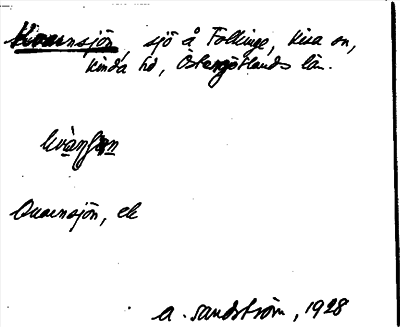 Kvarnsjön, sjö å Follinge, Kisa sn,
Kinda hd, Östergötlands län.
Quarnsjön, ek
A. Sandström, 1928